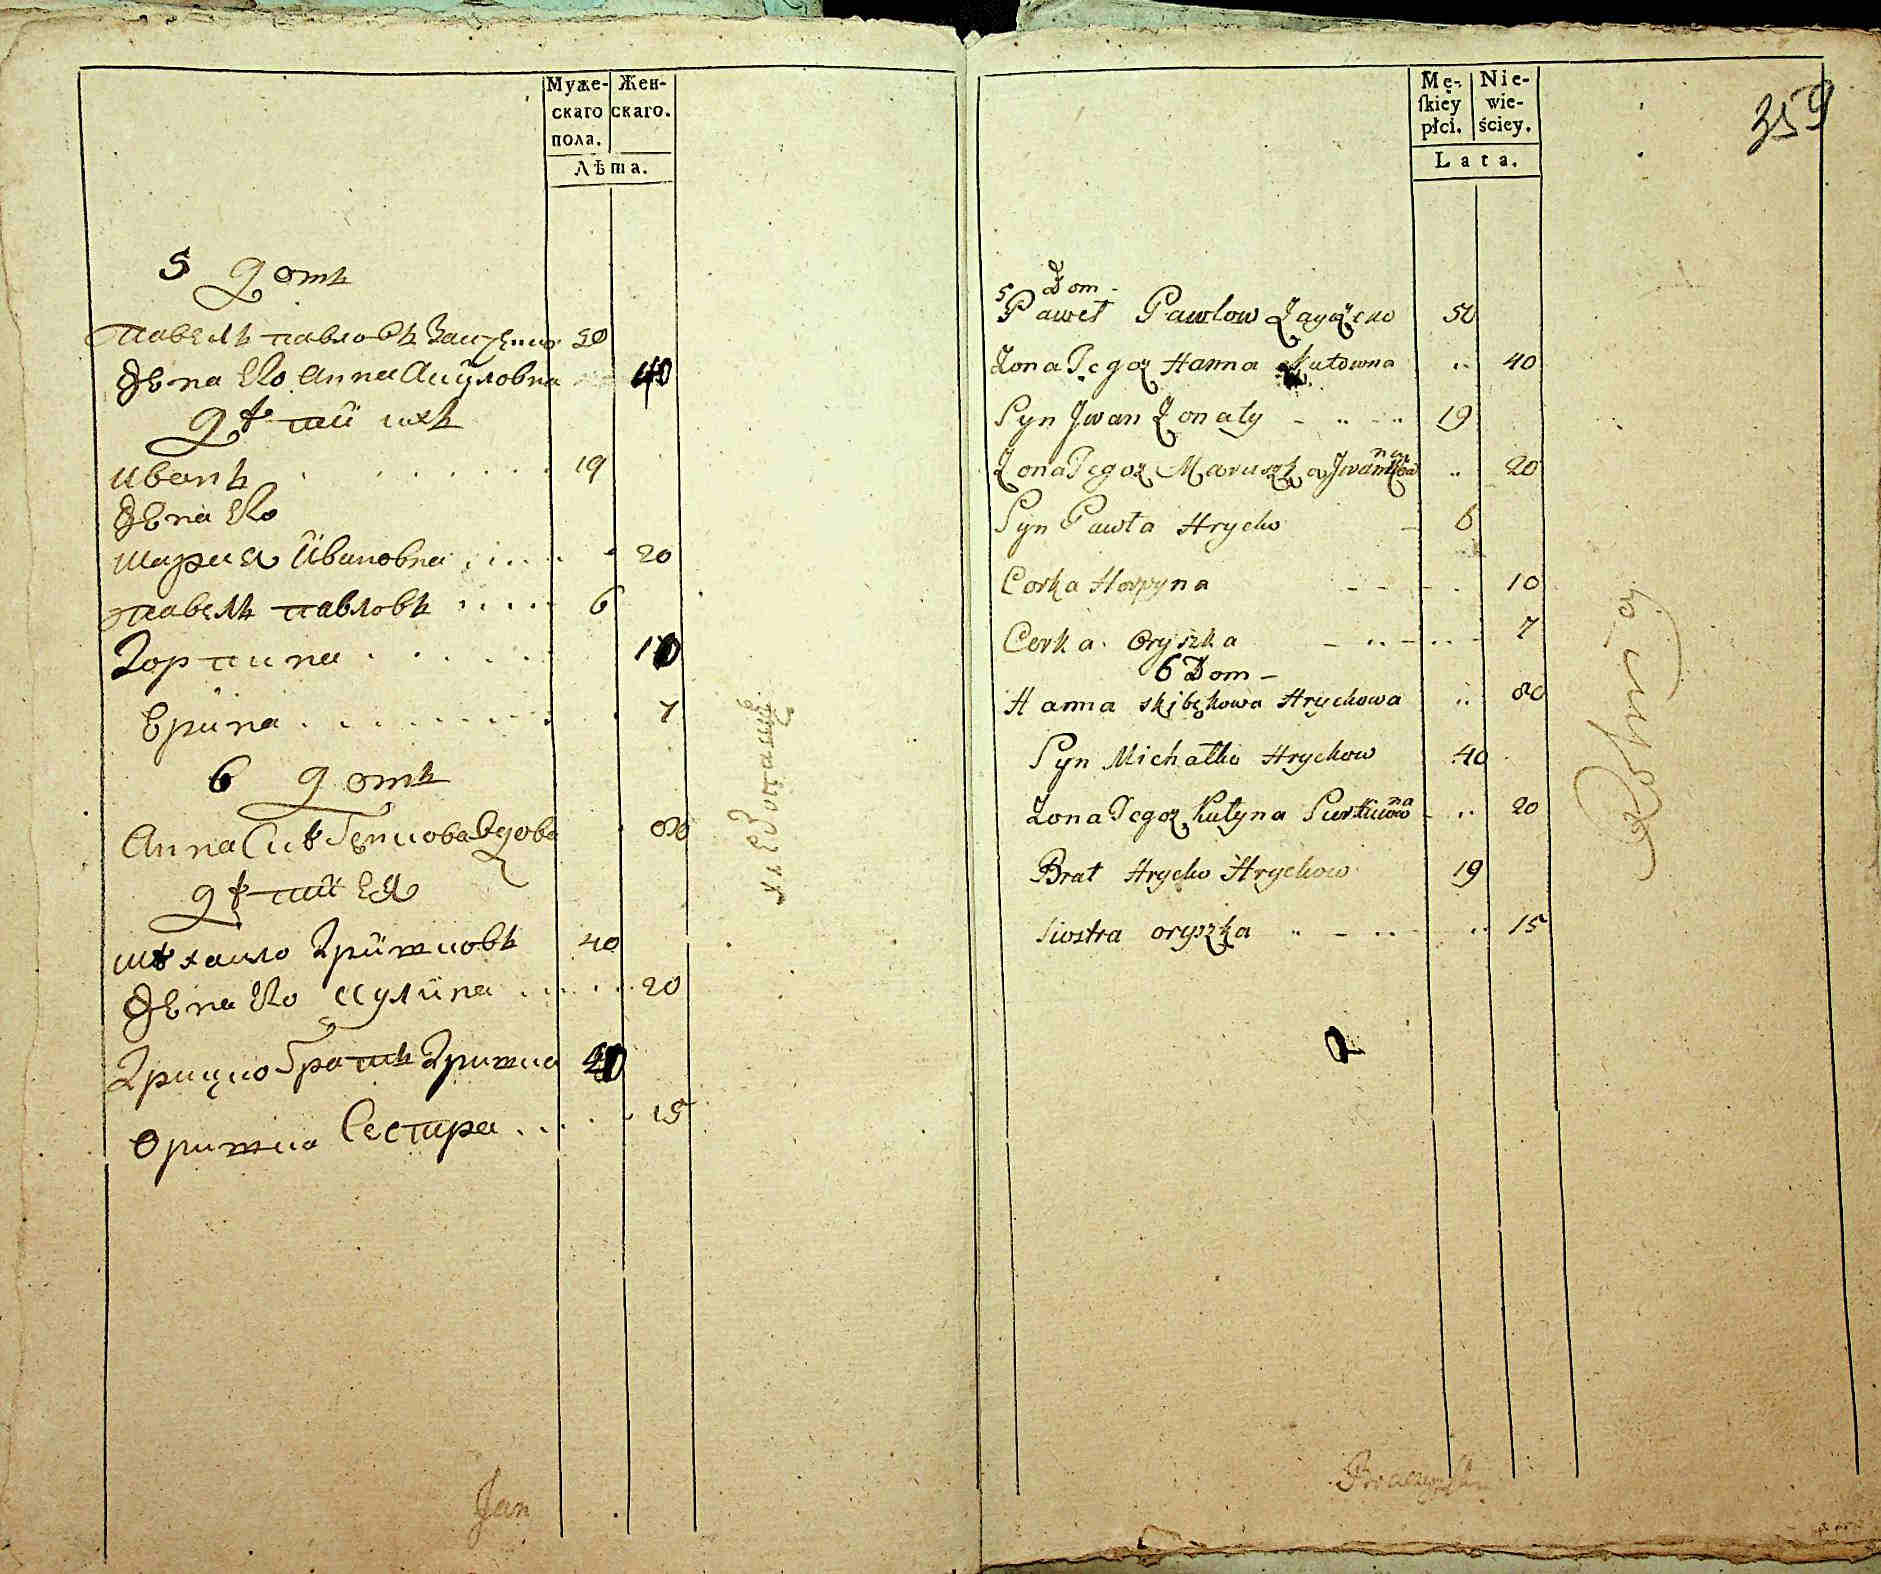 Муже-
скаго
пола.
Жен-
скаго.
Лѣта.
5 домъ
Павелъ Павловъ 50
Жена Его Анна 40
дѣти ихъ
Иванъ 19
Жена Его
Мария Ивановна 20
Павелъ Павловъ 6
Горпина 10
Ерина 7
6 домъ
Анна Вдова 80
дѣти Ея
Михаило Грицковъ 40
Жена Его Кулина 20
Грицко братъ
Оришка Сестра 15
Jan
Mę-
skiey
płci.
Nie-
wie-
ściey.
Lata.
359
5 Dom
Paweł Pawlow 50
Zona Jegoz Hanna 40
Syn Jwan Zonaty 19
Zona Jegoz Maruszka 20
Syn Pawła Hrycko 6
Corka Horpyna 10
Corka Oryszka 7
6 Dom
Hanna Skibękowa Hryckowa 80
Syn Michałko Hryckow 40
Zona Jegoz Kulyna 20
Brat Hrycko Hryckow 19
Siostra oryszka 15